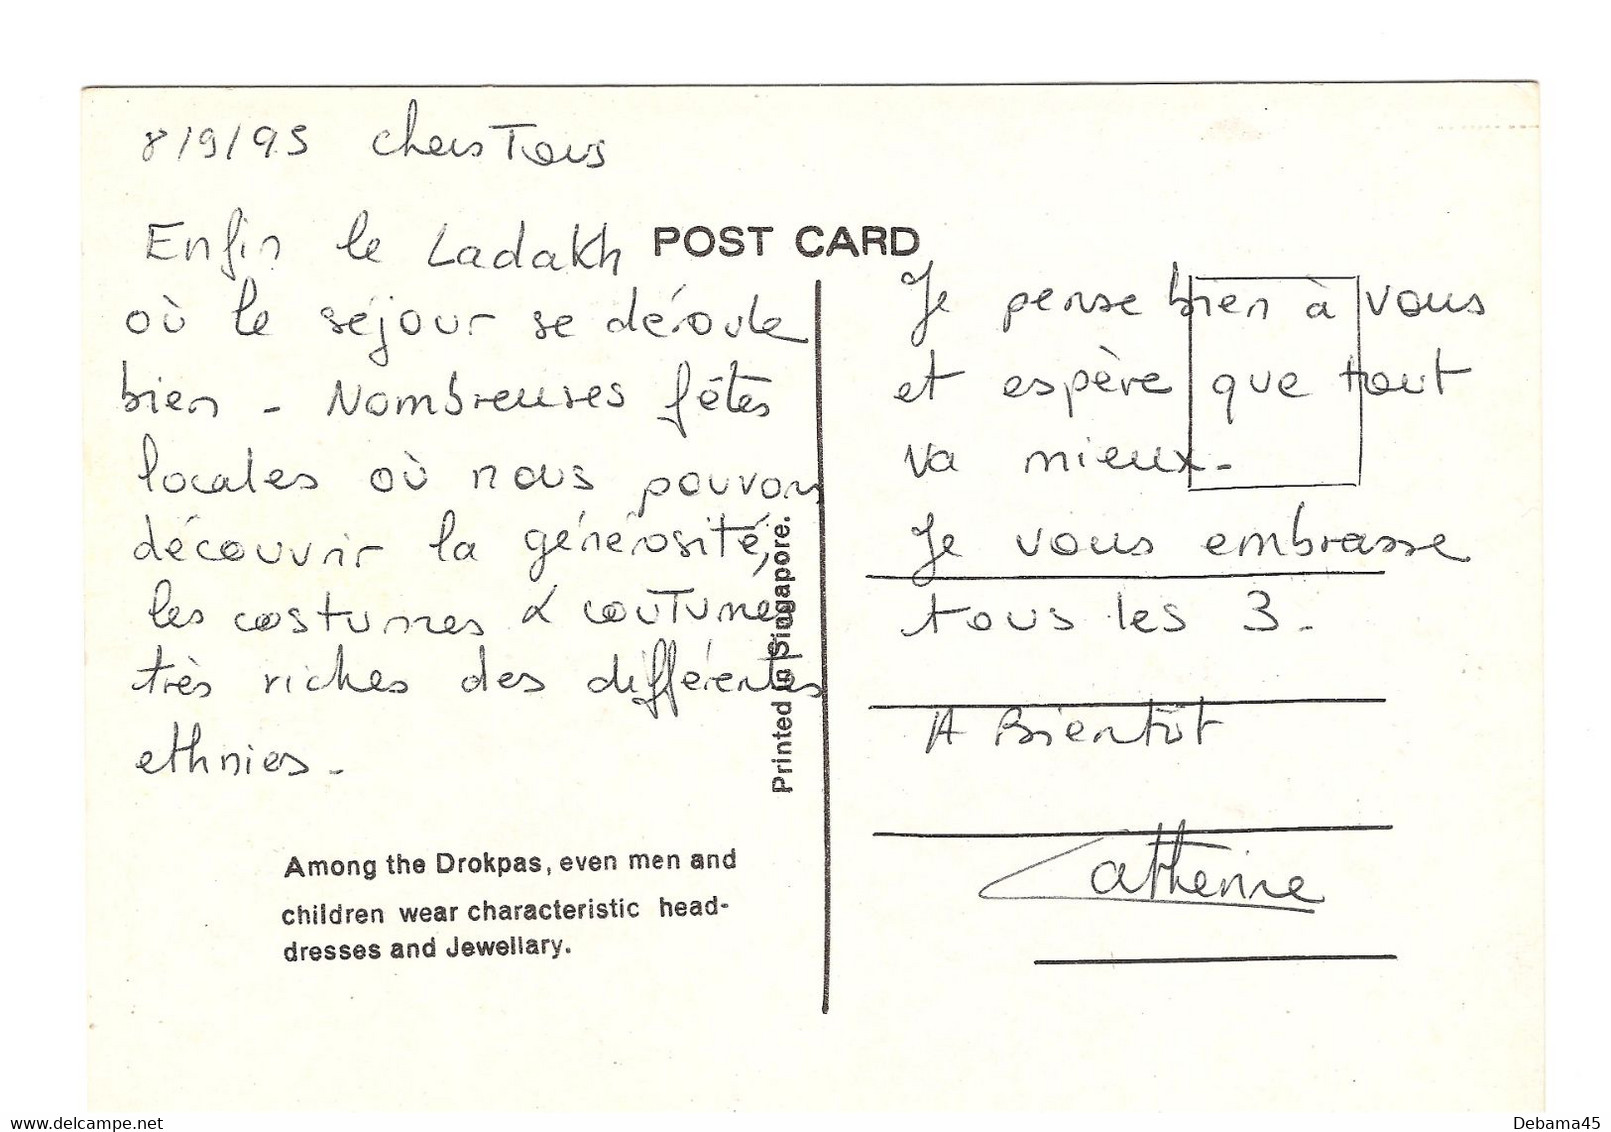 8/9/95 Chers Tous
Enfin le Ladakh
où le séjour se déroule
bien - Nombreuses fêtes
locales où nous pouvons
découvrir la générosité,
les costumes & coutumes
très riches des différentes
ethnies -
POST CARD
Je pense bien à vous
et espère que tout
va mieux -
Je vous embrasse
tous les 3 -
A Bientôt
Catherine
Printed in Singapore.
Among the Drokpas, even men and
children wear characteristic head-
dresses and Jewellary.
www.delcampe.net
Debama45